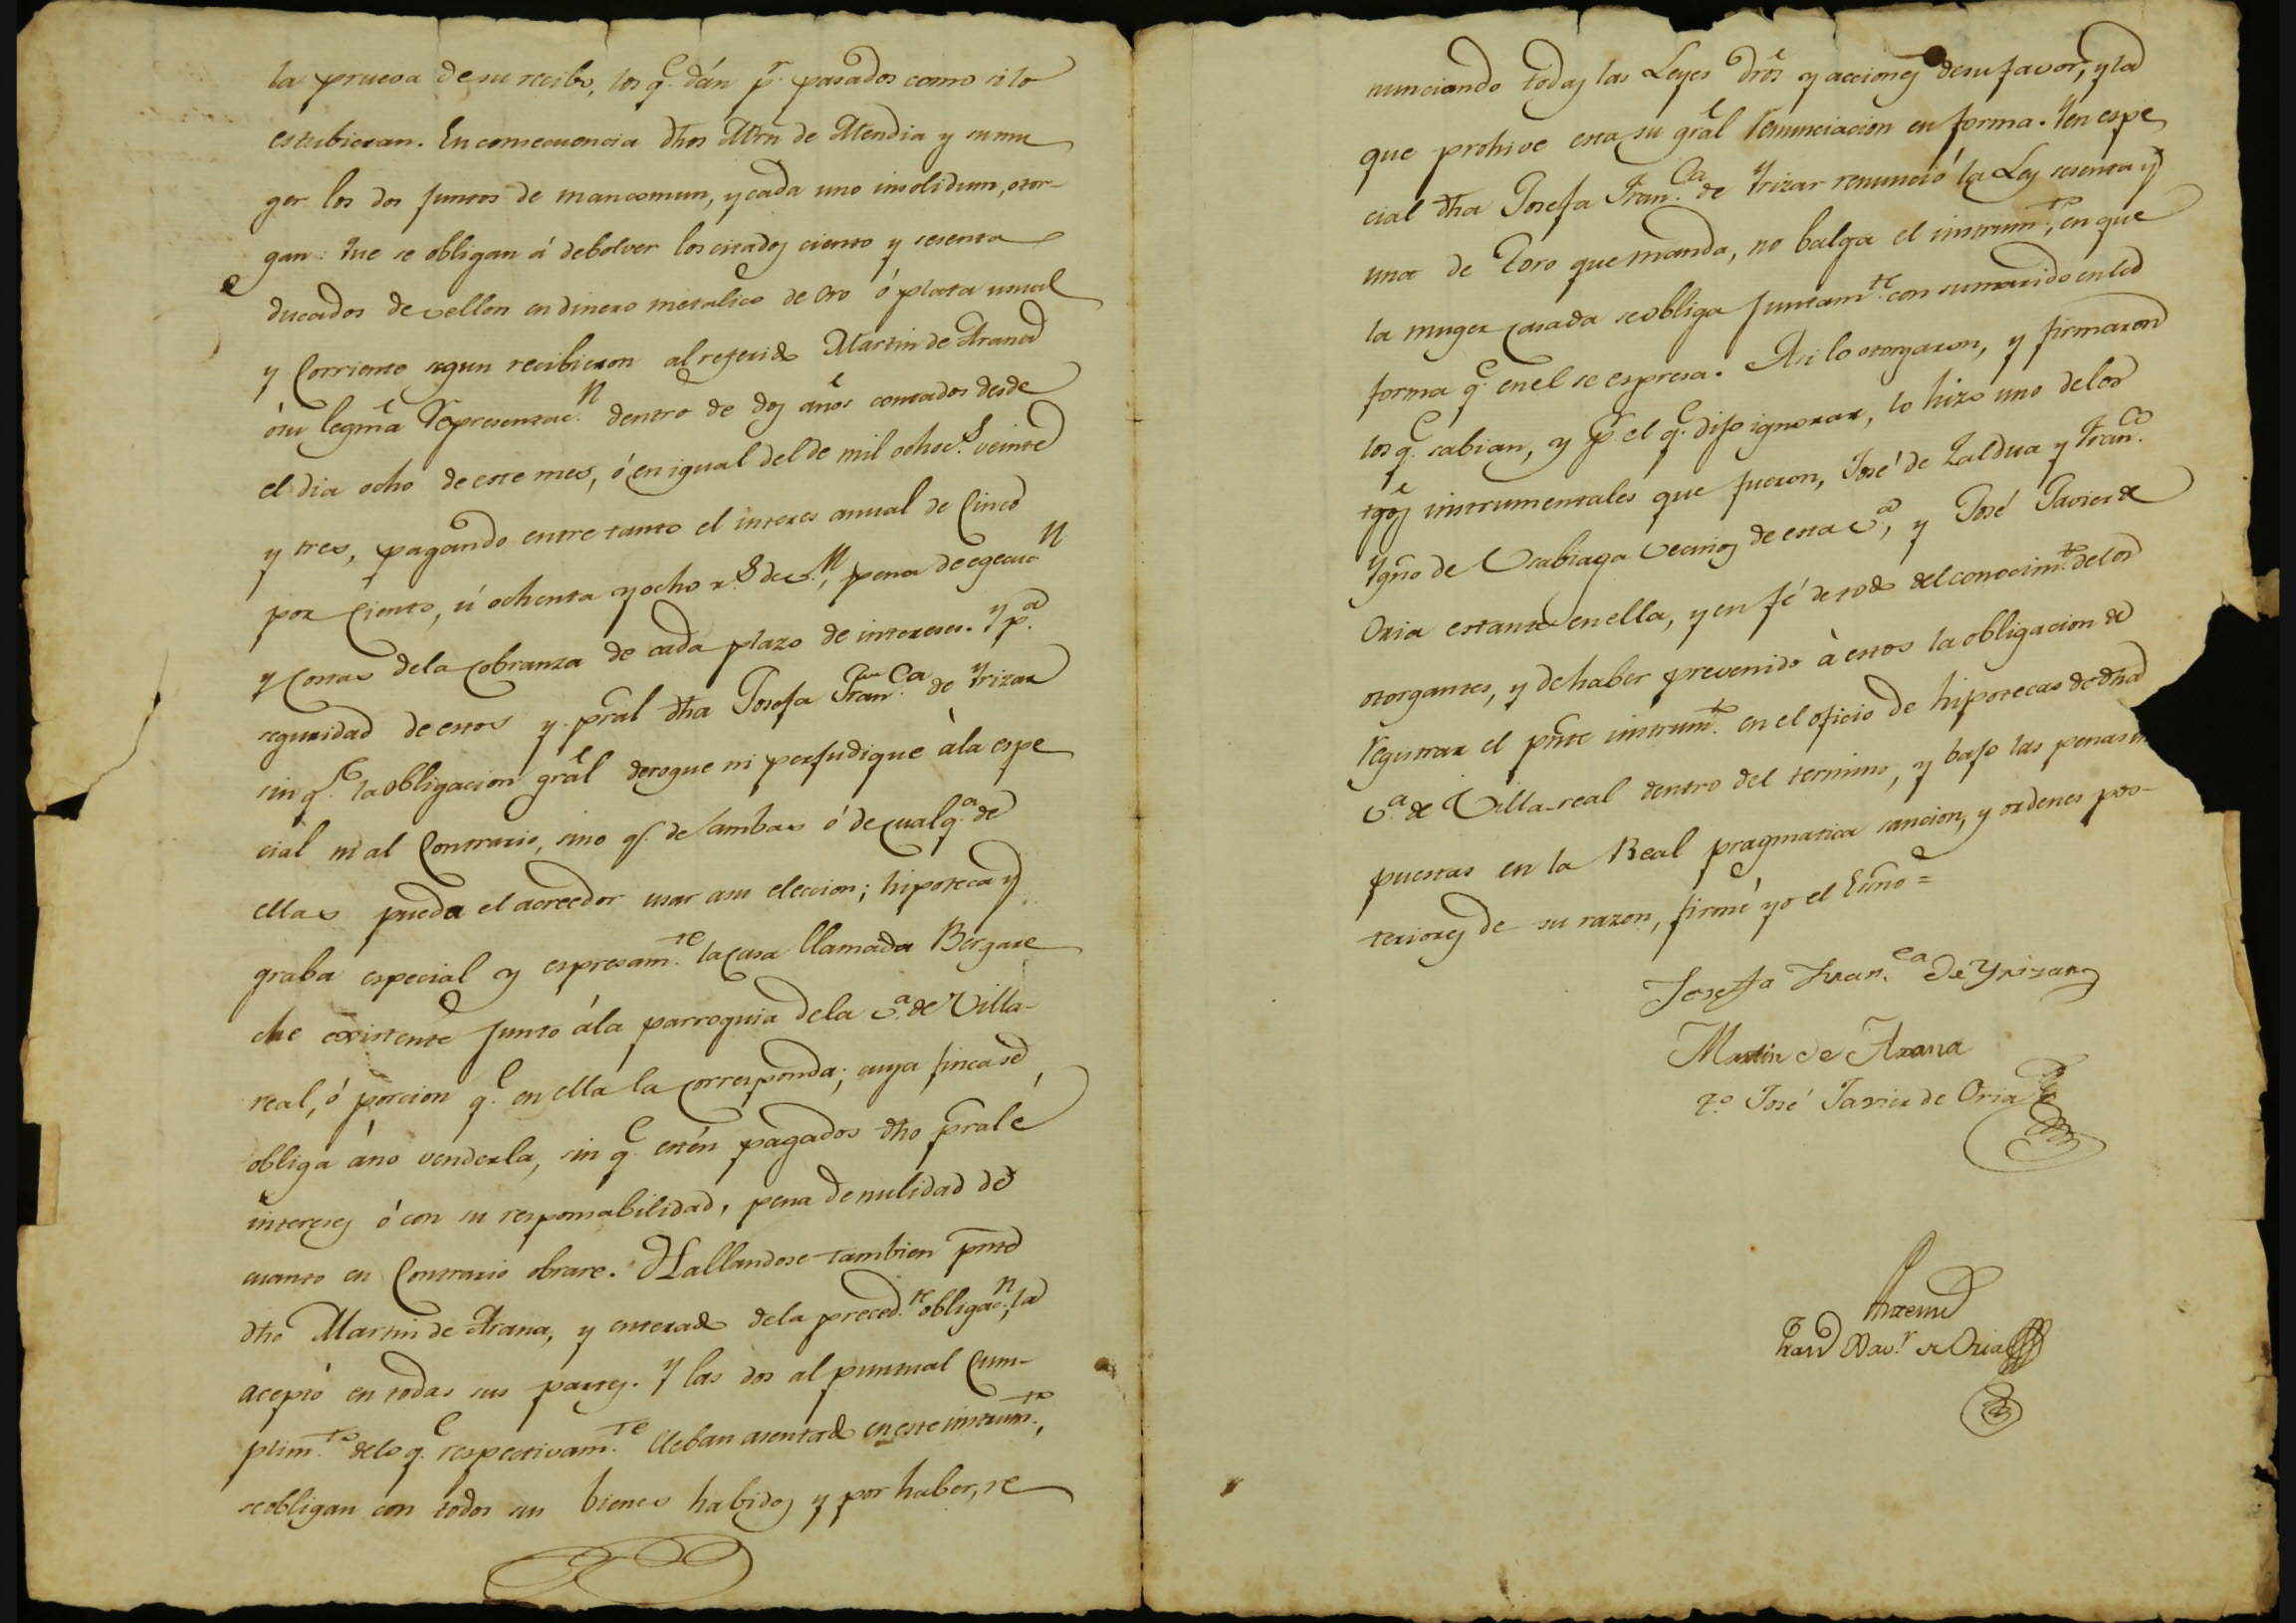 la prueva de su recibo, los q.e dán p.r pasados como si lo
estubieran. En consecuencia dhos Mrn de Atendia y su mu
ger los dos juntos de mancomun, y cada uno insolidum, otor-
gan: Que se obligan á debolver los citados ciento y sesenta
ducados de vellon en dinero metalico de Oro ó plata usual
y Corriente segun recibieron al referido Martin de Arana
ó su legma Representac.n dentro de dos años contados desde
el dia ocho de este mes, ó en igual del de mil ochoc.s veinte
y tres, pagando entre tanto el interes anual de Cinco
por Ciento, ú ochenta y ocho r.s de v.n, pena de egecuc.n
y Costas de la Cobranza de cada plazo de intereses. Y p.a
seguridad de estos y pral dha Josefa Fran.ca de Yrizar
sin q.e la obligacion gral derogue ni perjudique à la espe
cial ni al Contrario, sino q.e de ambas ó de cualq.a de
ellas pueda el acreedor usar a su eleccion; hipoteca y
graba especial y espresam.te la casa llamada Bergare
che existente junto á la parroquia de la v.a de Villa-
real, ó porcion q.e en ella la corresponda; cuya finca se
obliga á no venderla, sin q.e estén pagados dho pral é
intereses ó con su responsabilidad, pena de nulidad de
cuanto en Contrario obrare. Hallandose tambien pnte
dho Martin de Arana, y enterado de la preced.te obligac.n, la
aceptó en todas sus partes. Y las dos al puntual Cum-
plim.to de lo q.e respectivam.te lleban asentado en este instrum.to,
se obligan con todos sus bienes habidos y por haber, re
nunciando todas las Leyes dros y acciones de su favor, y la
que prohive esta su gral renunciacion en forma. Y en espe
cial dha Josefa Fran.ca de Yrizar renunció la Ley sesenta y
una de Toro que manda, no balga el instrum.to, en que
la muger casada se obliga juntam.te con su marido en la
forma q.e en el se espresa. Asi lo otorgaron, y firmaron
los q.e sabian, y p.r el q.e dijo ignorar, lo hizo uno de los
tgos instrumentales que fueron, José de Zaldua y Fran.co
Ygno de Usabiaga vecinos de esta v.a, y José Javier de
Oria estante en ella, y en fé de todo del conocim.to de los
otorgantes, y de haber prevenido à estos la obligacion de
registrar el pnte instrum.to en el oficio de hipotecas de dha
v.a de Villa-real dentro del termino, y bajo las penas im
puestas en la Real pragmatica sancion, y ordenes pos-
teriores de su razon, firmé yo el Esno =
Josefa Fran.ca de Yrizar
Martin de Arana
T.o José Javier de Oria
Antemi